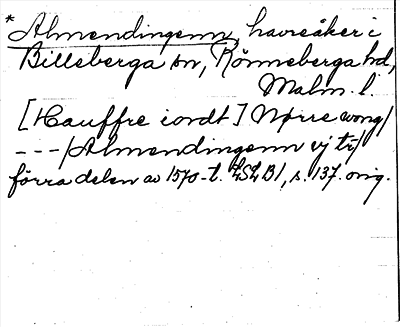 *Almendingenn, havreåker i
Billeberga sn, Rönneberga hd,
Malm. l.
[Hauffre iordt] Nørre wong/
---/Almendingenn vj tr/
förra delen av 1570-t. LSLB1, s. 137. orig.